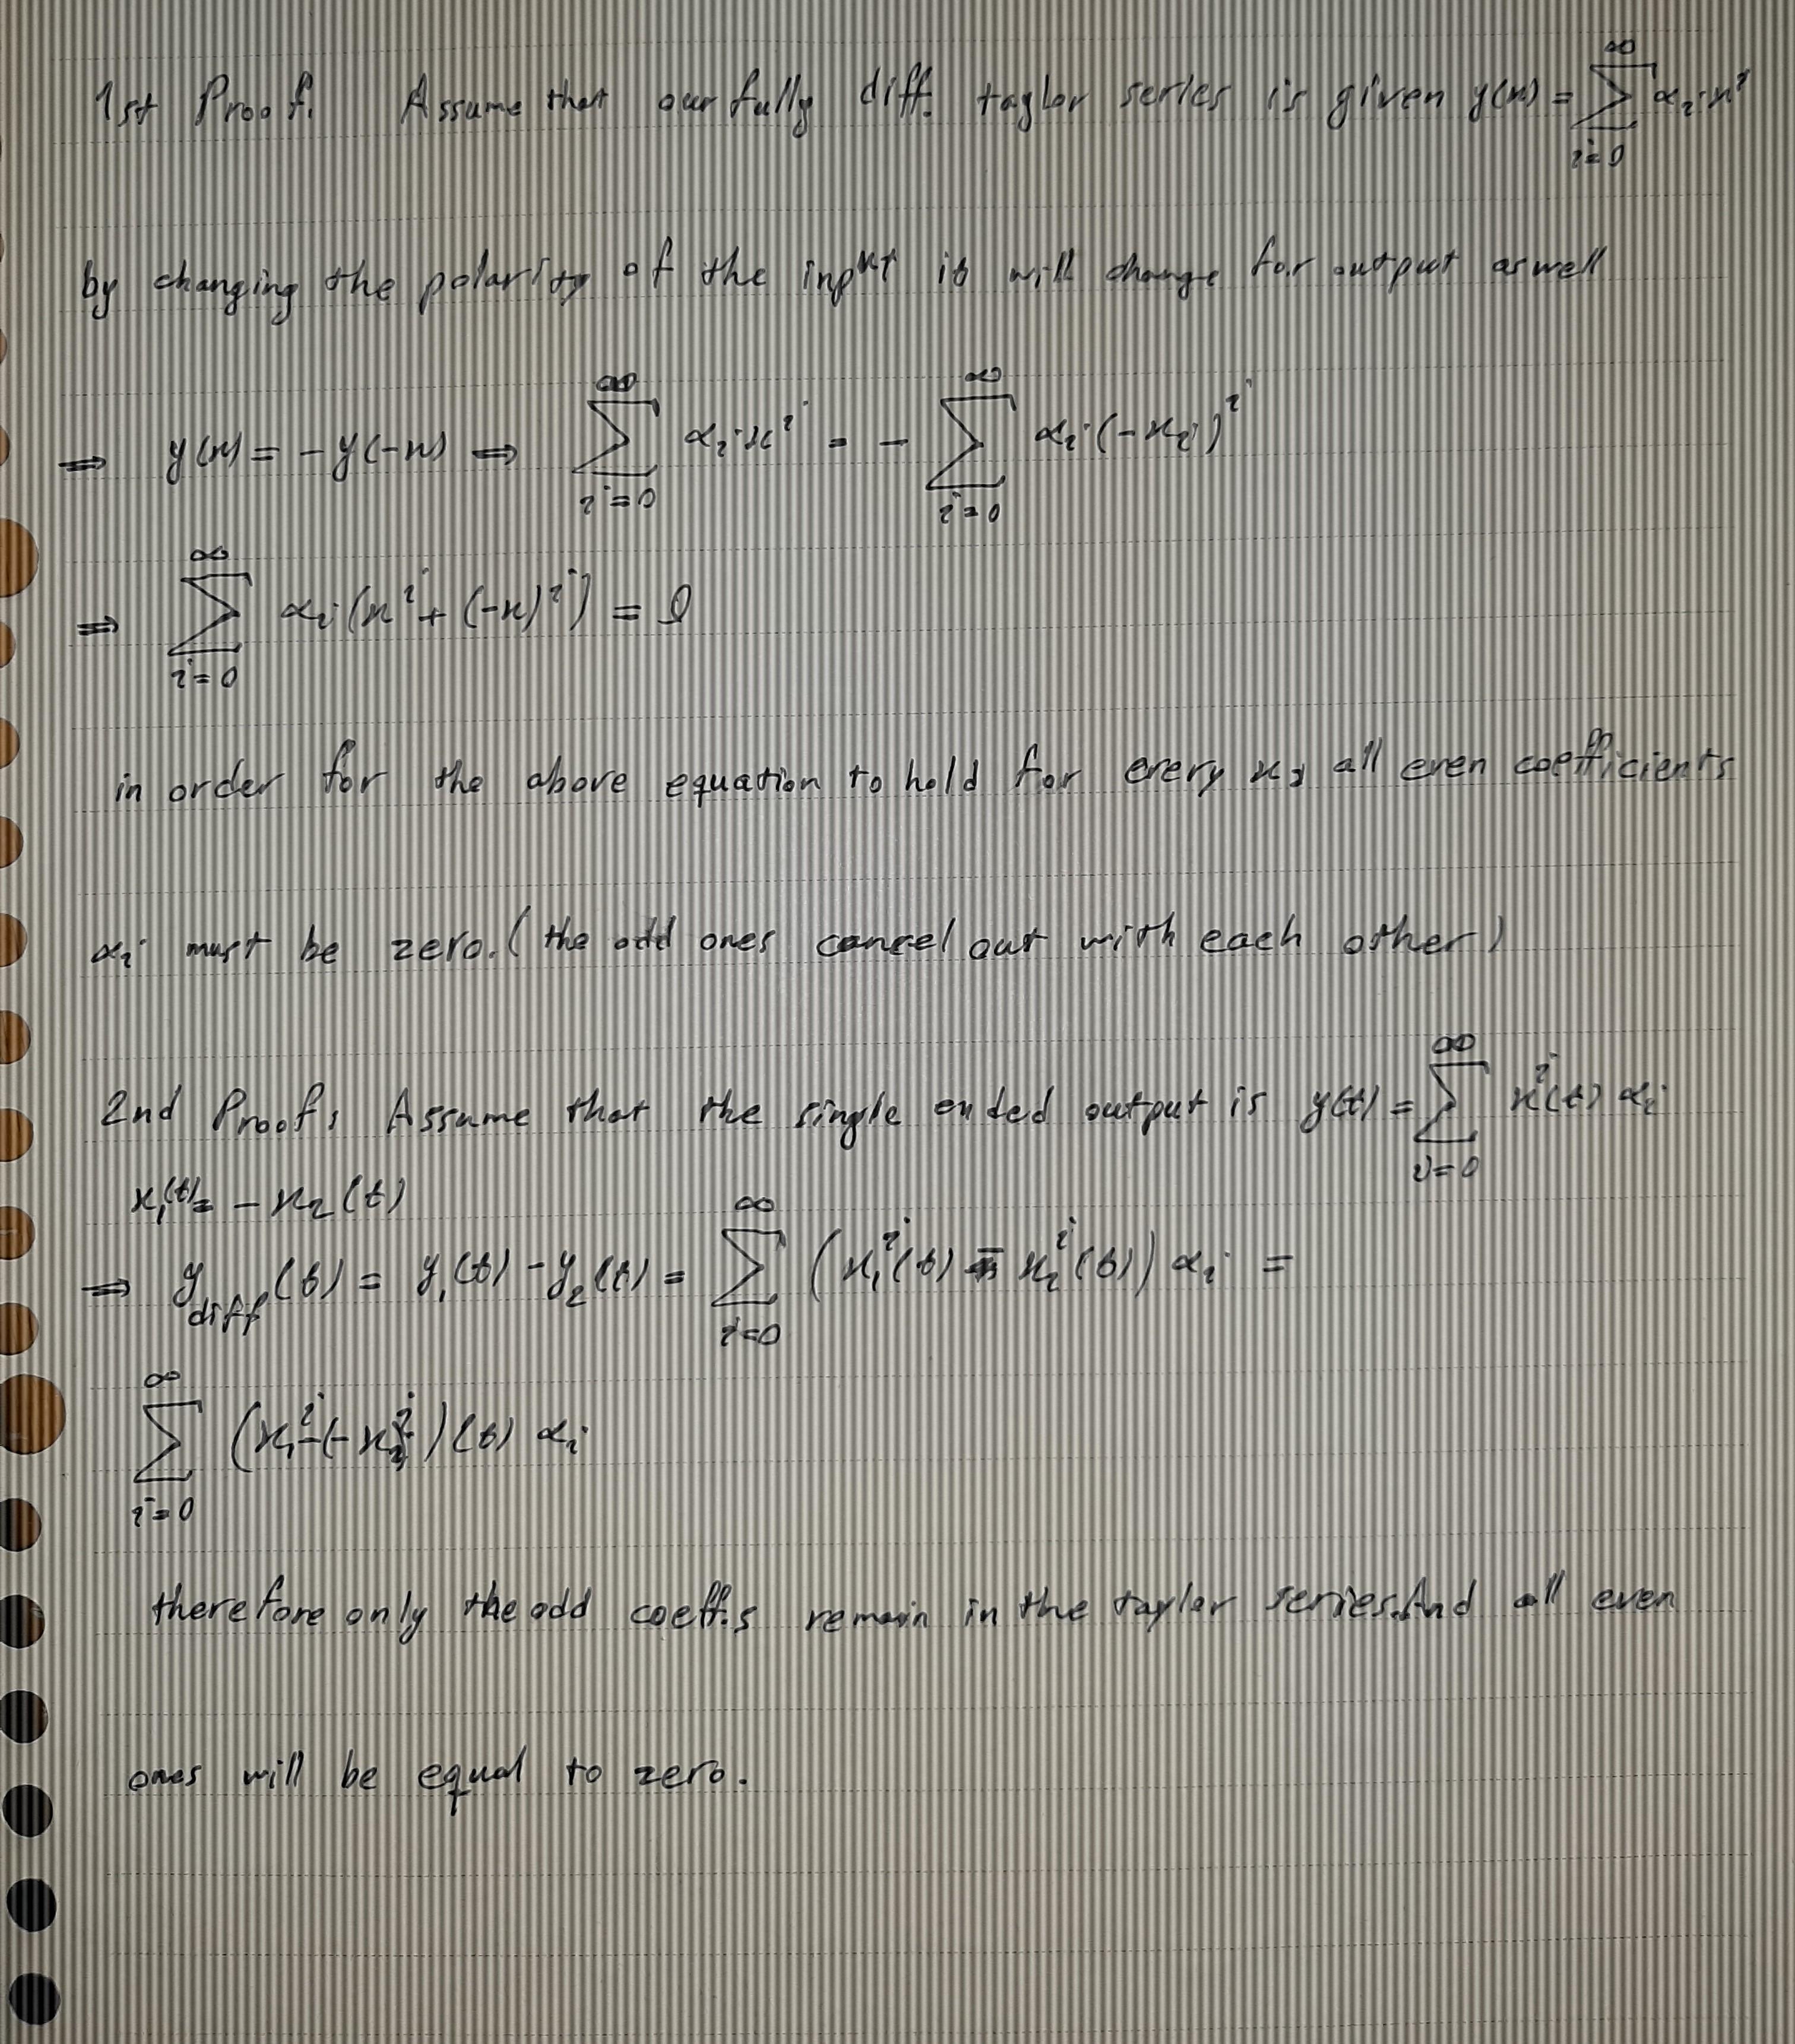 1st Proof: Assume that our fully diff. taylor series is given y(x) = ∑_{i=0}^{∞} α_i x^i
by changing the polarity of the input it will change for output as well
⇒ y(x) = -y(-x) ⇒ ∑_{i=0}^{∞} α_i x^i = - ∑_{i=0}^{∞} α_i (-x_i)^i
⇒ ∑_{i=0}^{∞} α_i (x^i + (-x)^i) = 0
in order for the above equation to hold for every x, all even coefficients
α_i must be zero. (the odd ones cancel out with each other)
2nd Proof: Assume that the single ended output is y(t) = ∑_{i=0}^{∞} x^i(t) α_i
x_1(t) = -x_2(t)
⇒ y_diff(t) = y_1(t) - y_2(t) = ∑_{i=0}^{∞} (x_1^i(t) - x_2^i(t)) α_i =
∑_{i=0}^{∞} (x_1^i - (-x)^i)(t) α_i
therefore only the odd coeff.s remain in the taylor series. And all even
ones will be equal to zero.